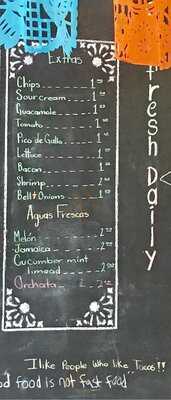 Extras
Chips 1
Sour cream 1
Guacamole 1
Tomato 1
Pico de Gallo 1
Lettuce 1
Bacon 1
Shrimp 2
Bell+Onions 1
Aguas Frescas
Melón 2
Jamaica 2
Cucumber mint
limead 2
Orchata 2
fresh Daily
I like People Who like Tacos!!
d food is not fast food"